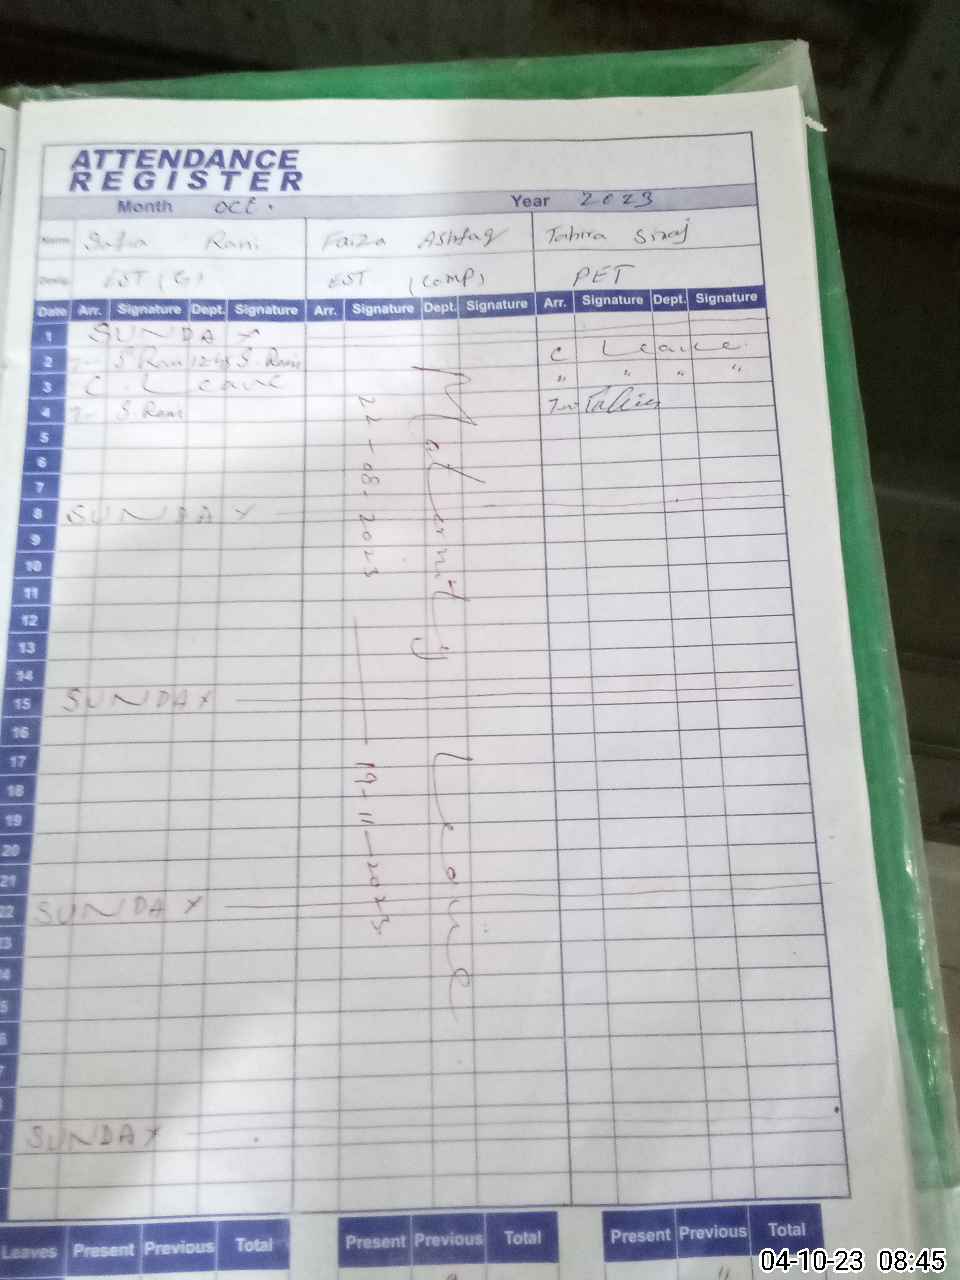 ATTENDANCE
REGISTER
Month Oct. Year 2023
Name Safia Rani Faiza Ashfaq Tahira Siraj
Desig. EST (G) EST (Comp) PET
Date Arr. Signature Dept. Signature Arr. Signature Dept. Signature Arr. Signature Dept. Signature
1 SUNDAY
2 S.Rani S.Rani C Leave
3 C. Leave " " " "
4 S.Rani
5
6
7
8 SUNDAY
9
10
11
12
13
14
15 SUNDAY
16
17
18
19
20
21
22 SUNDAY
SUNDAY
Maternity Leave
22-08-2023 — 19-11-2023
Leaves Present Previous Total Present Previous Total Present Previous Total
04-10-23 08:45